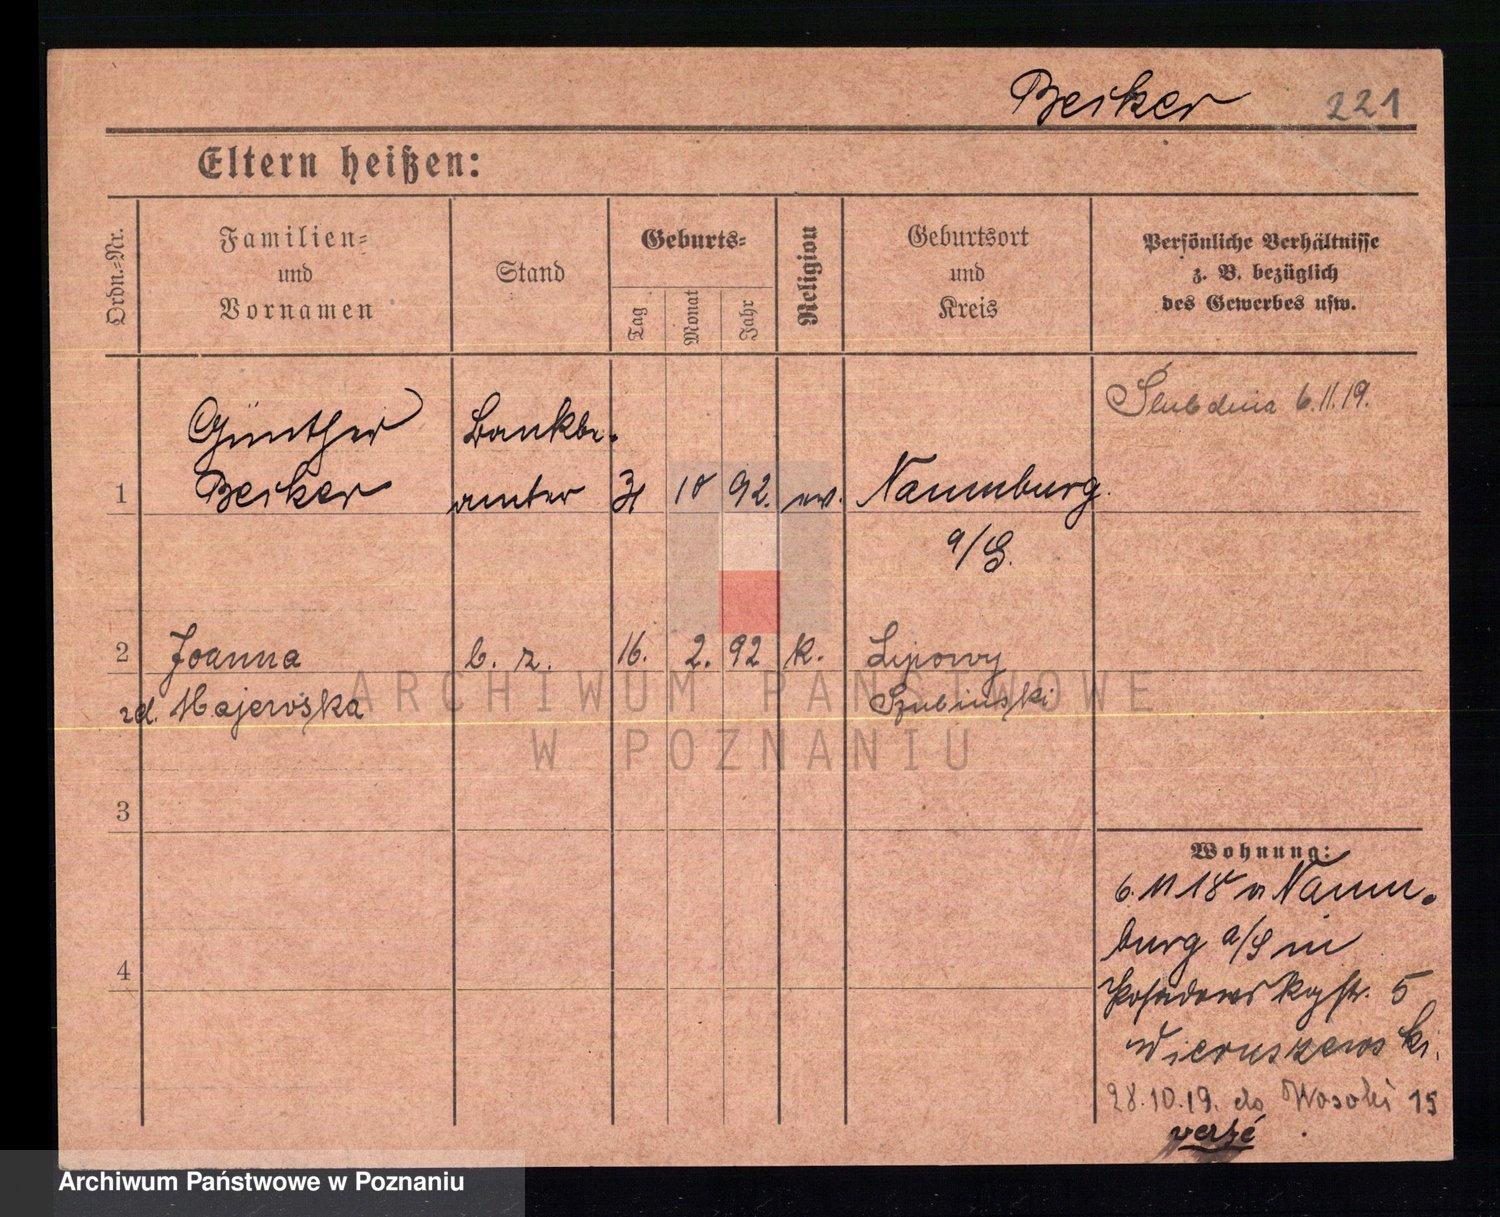 Beiker 221
Eltern heißen:
Ordn.=Nr.
Familien=
und
Vornamen
Stand
Geburts=
Tag
Monat
Jahr
Religion
Geburtsort
und
Kreis
Persönliche Verhältnisse
z. B. bezüglich
des Gewerbes usw.
Günther Bankbe-
1 Beiker amter 31 10 92. ev. Naumburg
a/S.
Ślub dnia 6.11.19.
2 Joanna b. z. 16. 2. 92 k. Lipowy
zd. Majewska Szubiński
3
4
Wohnung:
6. 11 18 v Naum-
burg a/S in
Posadowskystr. 5
Wieruszewski.
28.10.19. do 15
verte
ARCHIWUM PAŃSTWOWE
W POZNANIU
Archiwum Państwowe w Poznaniu